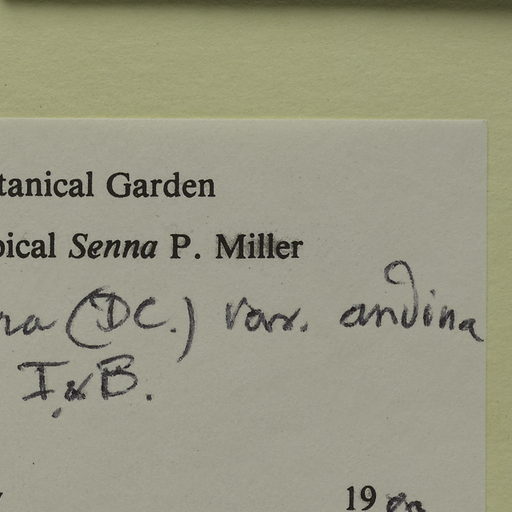 tanical Garden
pical Senna P. Miller
ra (DC.) var. andina
I. & B.
19